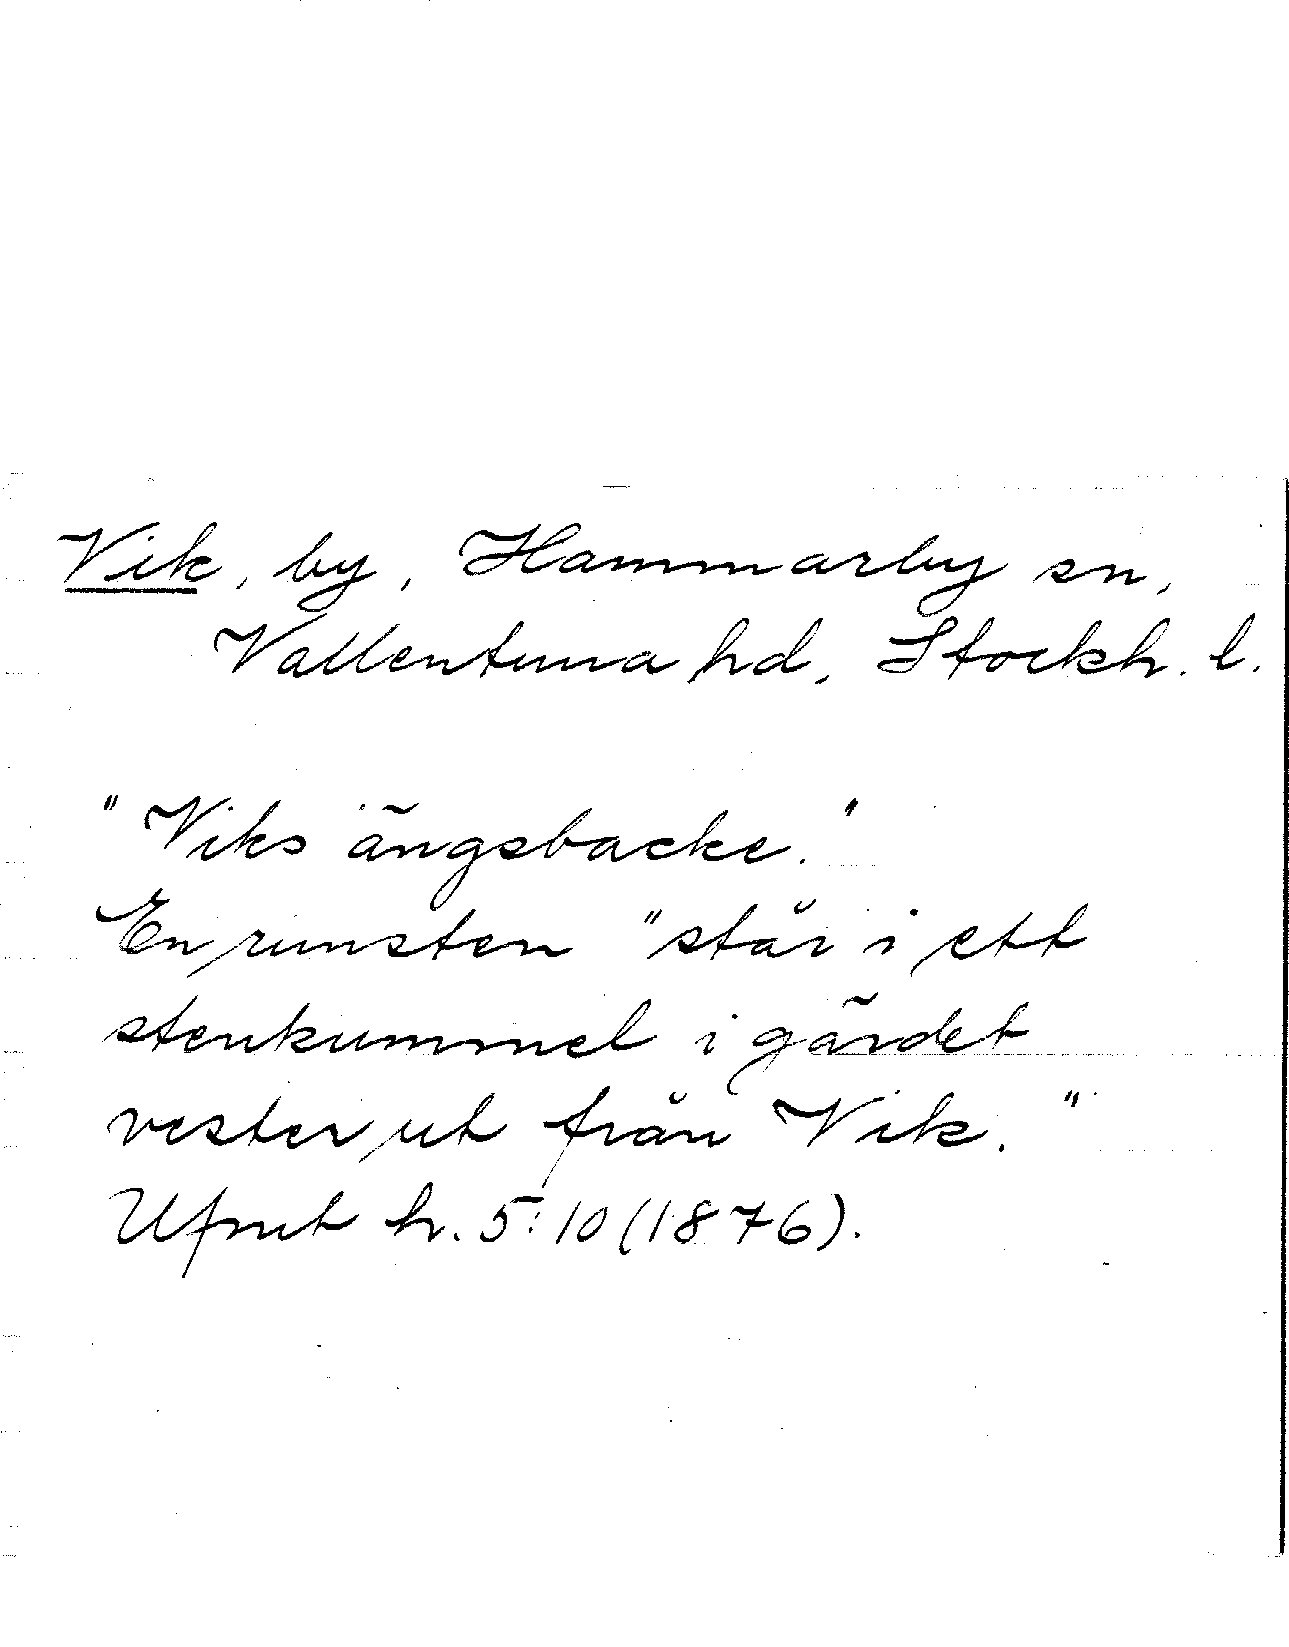 Vik, by, Hammarby sn,
Vallentuna hd, Stockh. l.
"Viks ängsbacke."
En runsten "står i ett
stenkummel i gärdet
vester ut från Vik."
Ufmt h. 5:10 (1876).